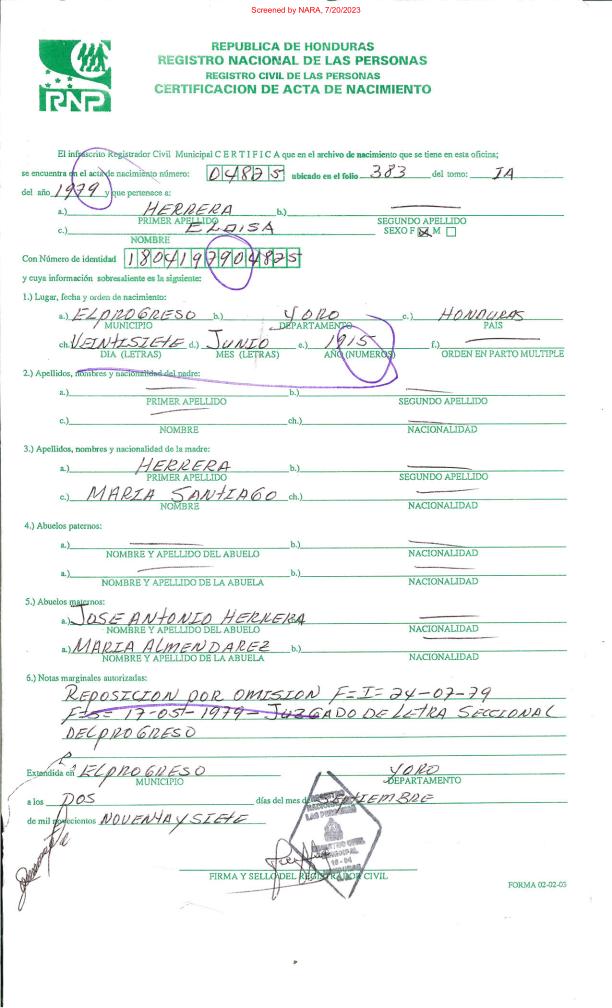 Screened by NARA, 7/20/2023
REPUBLICA DE HONDURAS
REGISTRO NACIONAL DE LAS PERSONAS
REGISTRO CIVIL DE LAS PERSONAS
CERTIFICACION DE ACTA DE NACIMIENTO
RNP
El infrascrito Registrador Civil Municipal C E R T I F I C A que en el archivo de nacimiento que se tiene en esta oficina;
se encuentra en el acta de nacimiento número: 04825 ubicado en el folio 383 del tomo: IA
del año 1979 y que pertenece a:
a.) HERRERA b.)
PRIMER APELLIDO SEGUNDO APELLIDO
c.) ELOISA SEXO F X M
NOMBRE
Con Número de identidad 1804197904825
y cuya información sobresaliente es la siguiente:
1.) Lugar, fecha y orden de nacimiento:
a.) EL PROGRESO b.) YORO c.) HONDURAS
MUNICIPIO DEPARTAMENTO PAIS
ch. VEINTISIETE d.) JUNIO e.) 1915 f.)
DIA (LETRAS) MES (LETRAS) AÑO (NUMEROS) ORDEN EN PARTO MULTIPLE
2.) Apellidos, nombres y nacionalidad del padre:
a.) b.)
PRIMER APELLIDO SEGUNDO APELLIDO
c.) ch.)
NOMBRE NACIONALIDAD
3.) Apellidos, nombres y nacionalidad de la madre:
a.) HERRERA b.)
PRIMER APELLIDO SEGUNDO APELLIDO
c.) MARIA SANTIAGO ch.)
NOMBRE NACIONALIDAD
4.) Abuelos paternos:
a.) b.)
NOMBRE Y APELLIDO DEL ABUELO NACIONALIDAD
a.) b.)
NOMBRE Y APELLIDO DE LA ABUELA NACIONALIDAD
5.) Abuelos maternos:
a.) JOSE ANTONIO HERRERA
NOMBRE Y APELLIDO DEL ABUELO NACIONALIDAD
a.) MARIA ALMENDAREZ b.)
NOMBRE Y APELLIDO DE LA ABUELA NACIONALIDAD
6.) Notas marginales autorizadas:
REPOSICION POR OMISION F=I= 24-07-79
F=S= 17-05-1979- JUZGADO DE LETRA SECCIONAL
DEL PROGRESO
Extendida en EL PROGRESO YORO
MUNICIPIO DEPARTAMENTO
a los DOS días del mes de SEPTIEMBRE
de mil novecientos NOVENTA Y SIETE
FIRMA Y SELLO DEL REGISTRADOR CIVIL
FORMA 02-02-03